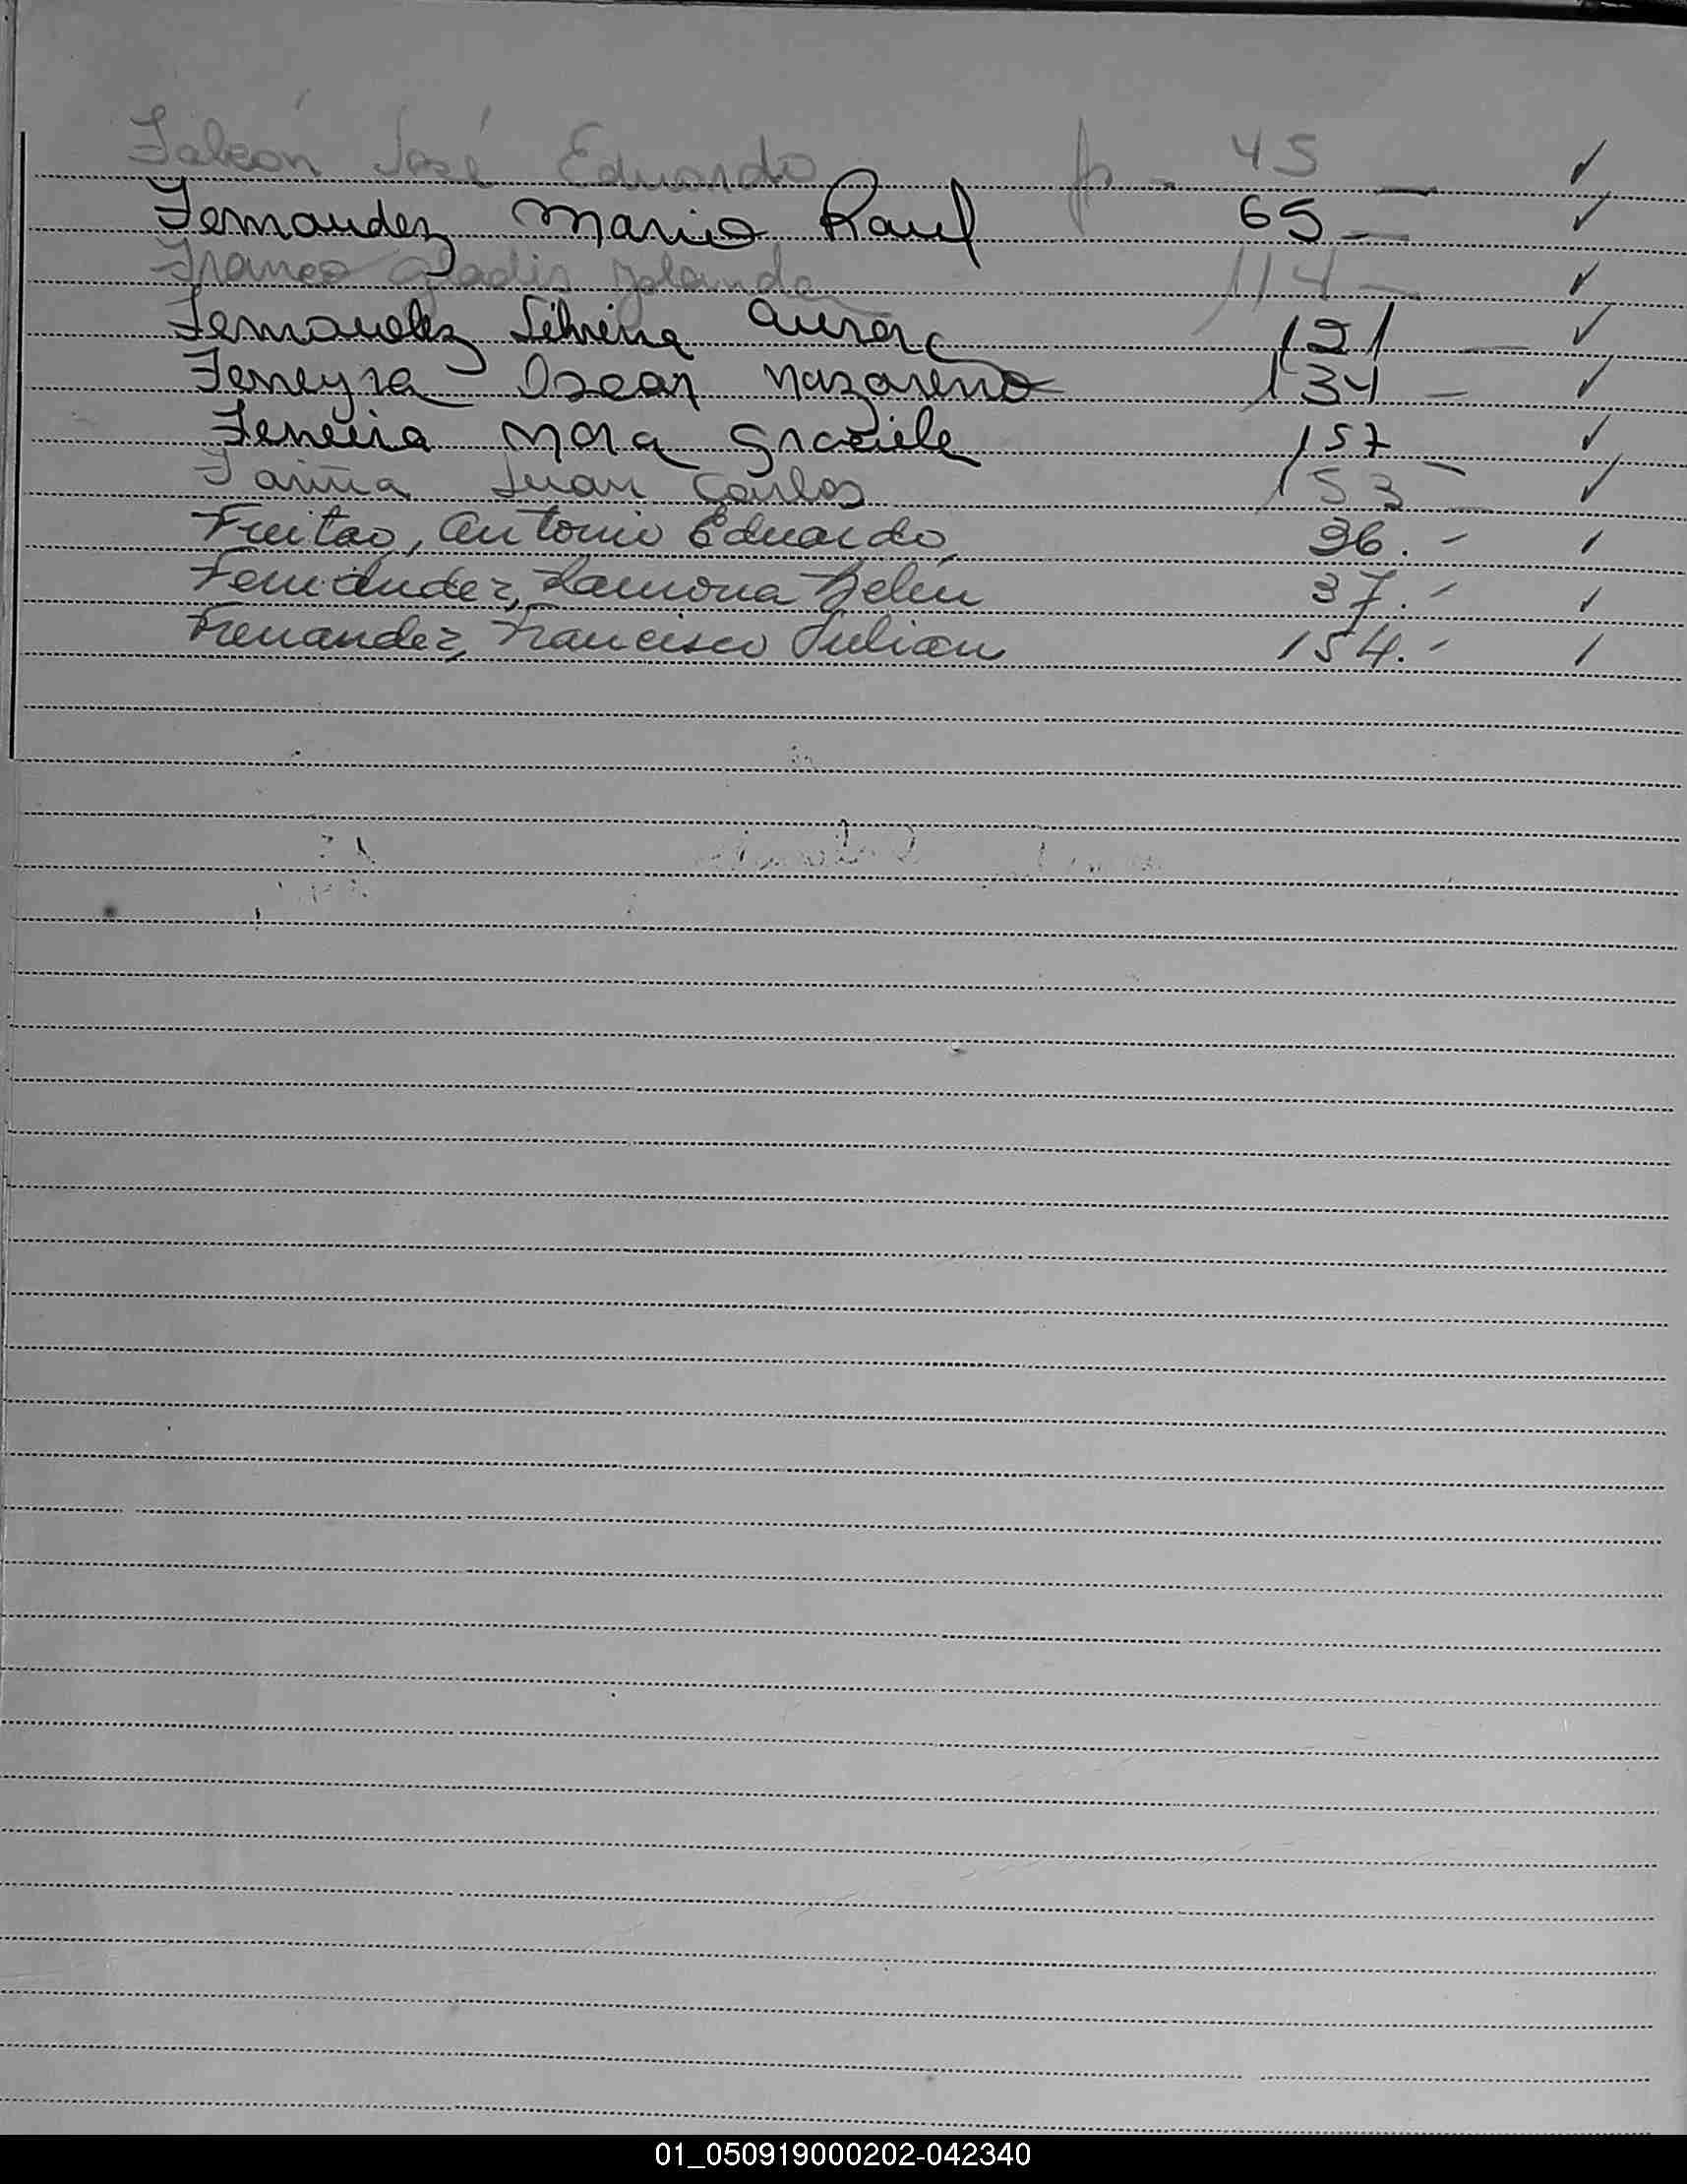 Falcón José Eduardo fs - 45 — ✓
Fernandez Mario Raul 65 — ✓
Franco Gladis Yolanda 114 — ✓
Fernandez Silvina Aurora 121 — ✓
Ferreyra Oscar Nazareno 134 — ✓
Ferreira Mora Graciela 157 — ✓
Fariña Juan Carlos 153 — ✓
Freitas, Antonio Eduardo, 36. -
Fernández, Ramona Belén 37. -
Fernandez, Francisco Julian 154. -
01_050919000202-042340